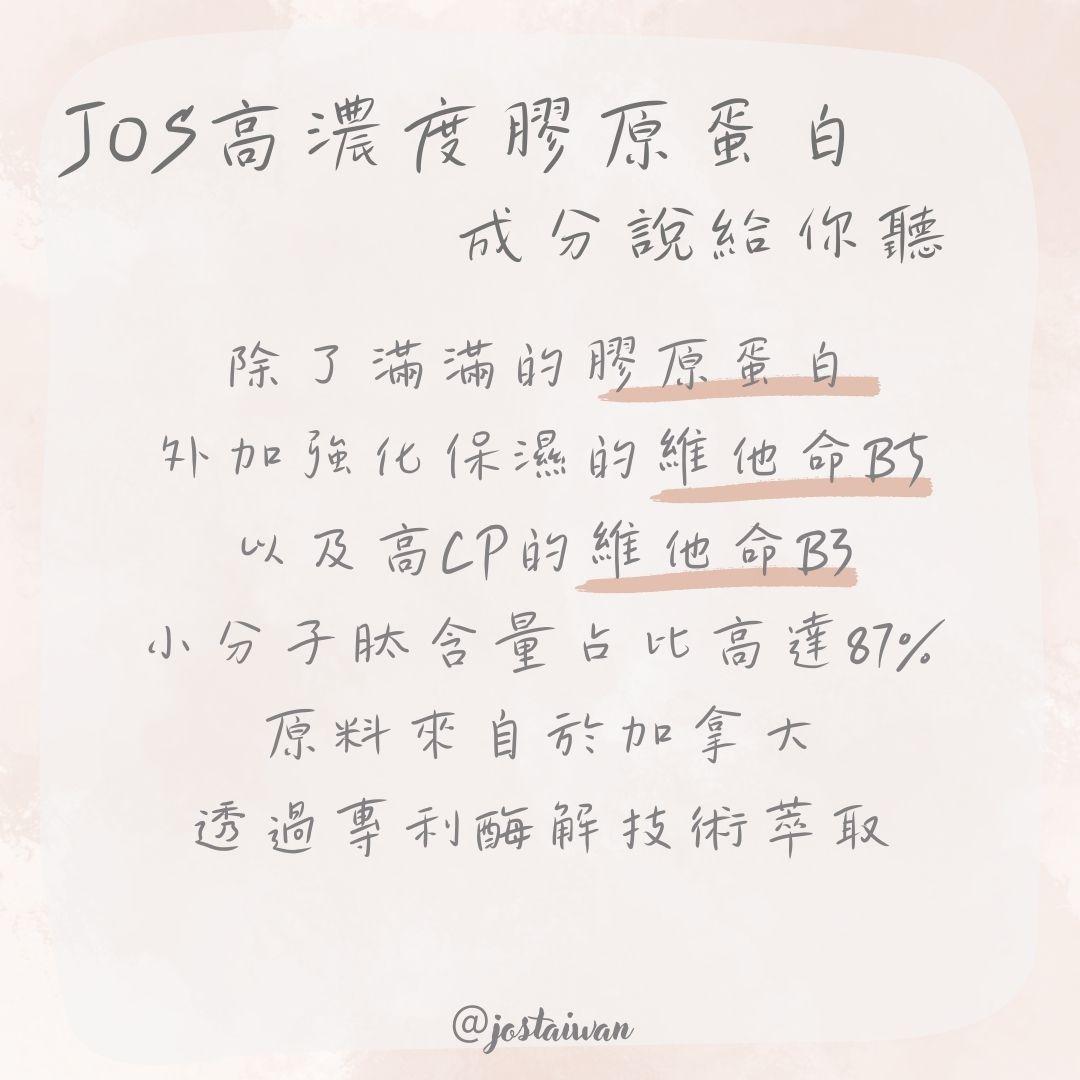 JOS高濃度膠原蛋白
成分說給你聽
除了滿滿的膠原蛋白
外加強化保濕的維他命B5
以及高CP的維他命B3
小分子肽含量占比高達87%
原料來自於加拿大
透過專利酶解技術萃取
@jostaiwan